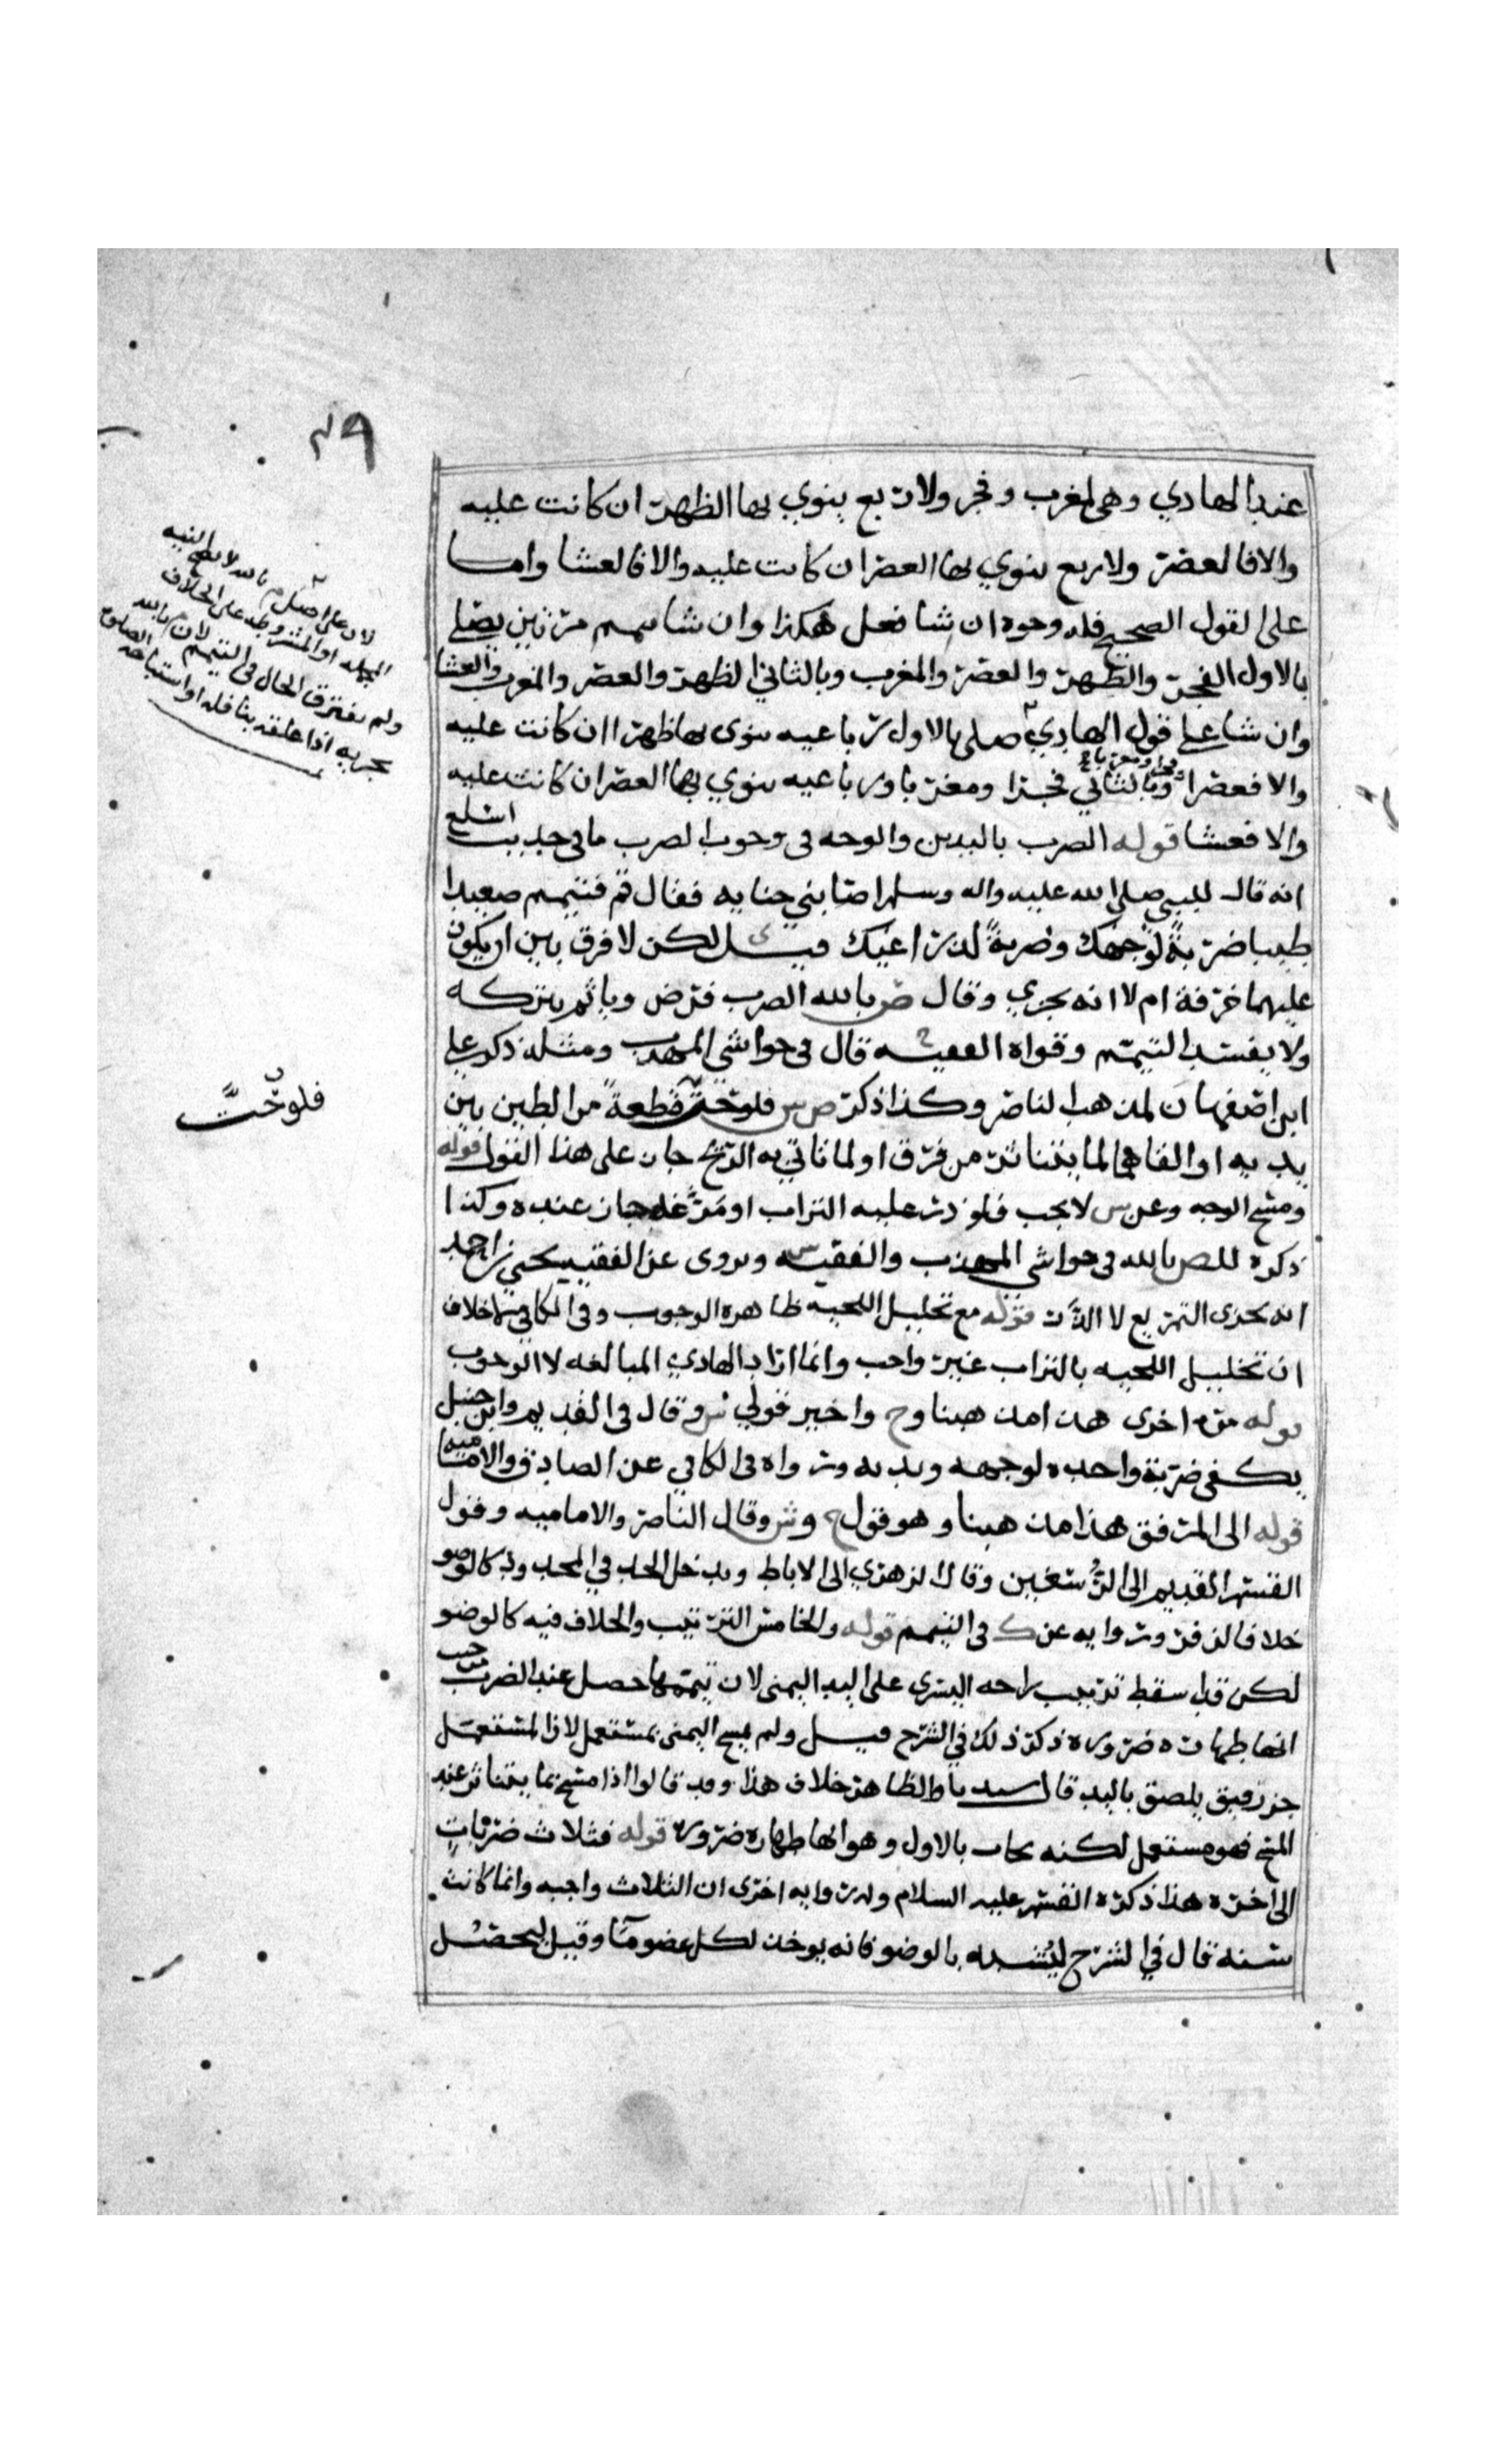 ٤٩
عند الهادي وهي مغرب وفجر ولاربع ينوي بها الظهر ان كانت عليه
والا فالعصر ولاربع ينوي بها العصر ان كانت عليه والا فالعشا واما
على القول الصحيح فله وجوه ان شا فعل هكذا وان شا تيمم مرتين يصلي
بالاول الفجر والظهر والعصر والمغرب وبالثاني الظهر والعصر والمغرب والعشا
وان شا على قول الهادي صلى بالاول رباعيه ينوي بها ظهرا ان كانت عليه
والا فعصرا وبالثاني فجرا ومغربا ورباعيه ينوي بها العصر ان كانت عليه
والا فعشا قوله الضرب باليدين والوجه في وجوب الضرب ما في حديث اسلع
انه قال للنبي صلى الله عليه واله وسلم اصابني جنابه فقال قم فتيمم صعيدا
طيبا ضربةً لوجهك وضربةً لذراعيك قيل لكن لا فرق بين ان يكون
عليهما خرقة ام لا انه يجزي وقال ص بالله الضرب فرض وياثم بتركه
ولا يفسد التيمم وقواه الفقيه قال في حواشي المهذب ومثله ذكر علي
ابن اصفهان لمذهب الناصر وكذا ذكر ص س فلو حتَّ قطعةً من الطين بين
يديه او القاهما لما يتناثر من فرق او لما تاتي به الريح جاز على هذا القول قوله
ومسح الوجه وعن س لا يجب فلو ذر عليه التراب او مرَّغه جاز عنده وكذا
ذكره للص بالله في حواشي المهذب والفقيه س ويروى عن الفقيه يحيى بن احمد
انه يجزي التمريغ لا الذَّر قوله مع تخليل اللحيه ظاهره الوجوب وفي الكافي خلاف
ان تخليل اللحيه بالتراب غير واجب وانما اراد الهادي المبالغه لا الوجوب
قوله مره اخرى هذا مذهبنا وح واخير قولي ش وقال في القديم وابن حنبل
يكفي ضربة واحده لوجهه ويديه ورواه في الكافي عن الصادق والاماميه
قوله الى المرفق هذا مذهبنا وهو قول ح وش وقال الناصر والاماميه وقول
القسم القديم الى الرُّسغين وقال الزهري الى الاباط ويدخل الحد في المحدود كالوضو
خلافا لزفر وروايه عن ك في التيمم قوله والخامس الترتيب والخلاف فيه كالوضو
لكن قد سقط ترتيب راحه اليسرى على اليد اليمنى لان تيممها حصل عند الضرب
انها طهارة ضروره ذكر ذلك في الشرح قيل ولم يمسح اليمنى بمستعمل لان المستعمل
جز رقيق يلصق باليد قال سيدنا والظاهر خلاف هذا وقد قالوا اذا مسح بما يتناثر عند
المسح فهو مستعمل لكنه يجاب بالاول وهو انها طهاره ضروره قوله فثلاث ضربات
الى اخره هذا ذكره القسم عليه السلام وله روايه اخرى ان الثلاث واجبه وانما كانت
سنه قال في الشرح ليُشبه بالوضو فانه يوخذ لكل عضو مآ وقيل ليحصل
لان على اصل م بالله لا تصح النيه
المجمله او المشروطه على الخلاف
ولم يفترق الحال في التيمم لان م بالله
يجزيه اذا علقه بنافله او استباحه الصلوة
فلو حتَّ